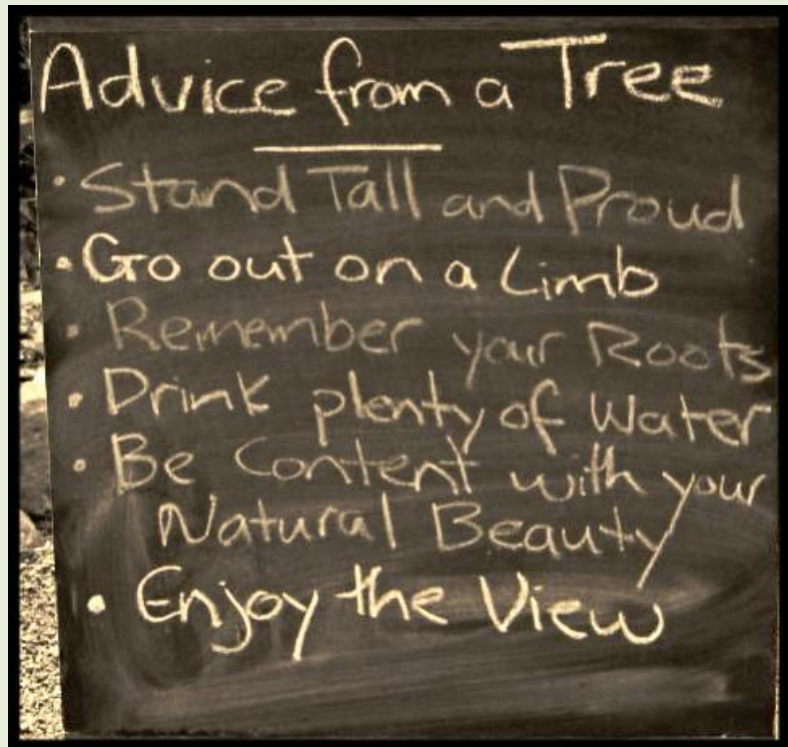 Advice from a Tree
• Stand Tall and Proud
• Go out on a Limb
• Remember your Roots
• Drink plenty of Water
• Be Content with your
Natural Beauty
• Enjoy the View